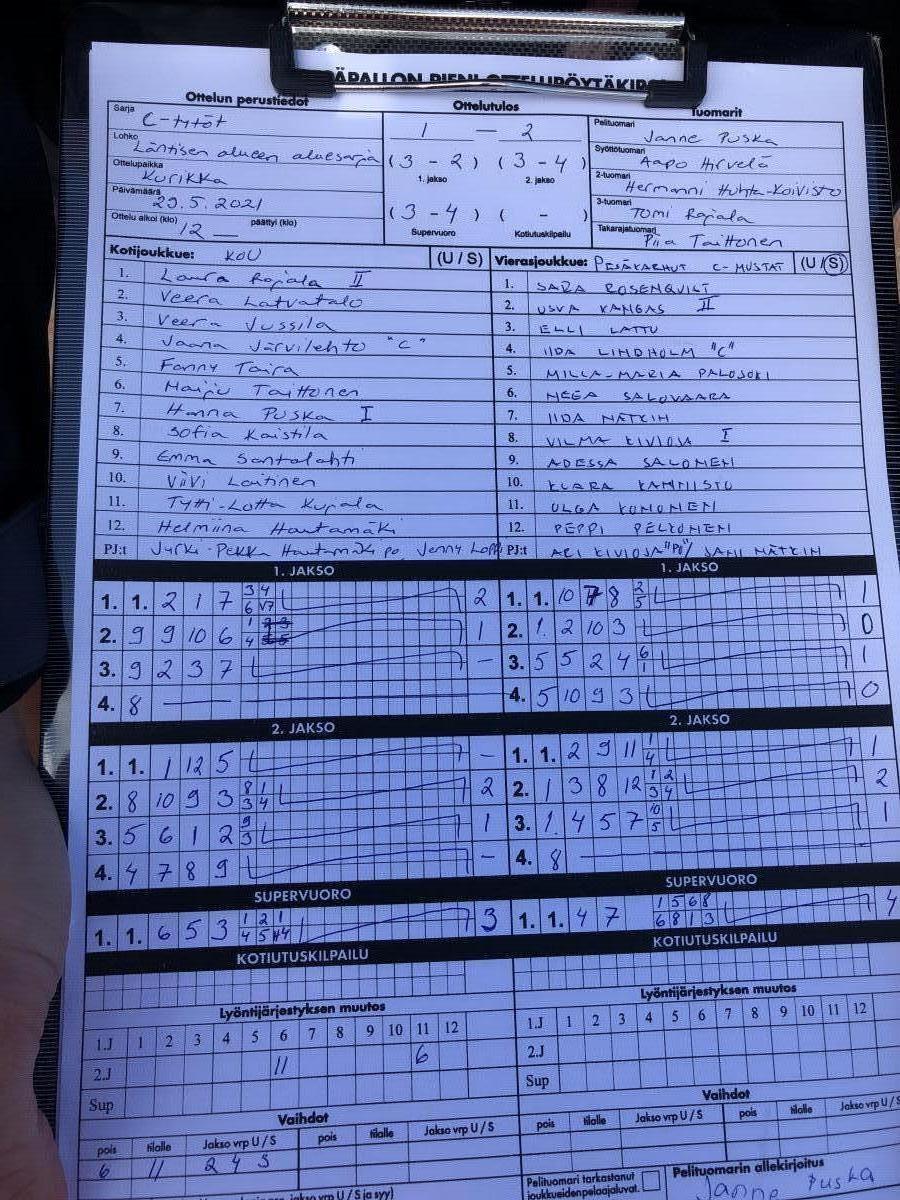 Ottelun perustiedot
Sarja C-tytöt
Lohko Läntisen alueen aluesarja
Ottelupaikka Kurikka
Päivämäärä 29.5.2021
Ottelu alkoi (klo) 12 päättyi (klo) —
Ottelutulos
1 — 2
(3 - 2) (3 - 4)
1. jakso 2. jakso
(3 - 4) ( - )
Supervuoro Kotiutuskilpailu
Tuomarit
Pelituomari Janne Puska
Syöttötuomari Aapo Hirvelä
2-tuomari Hermanni Huhta-Koivisto
3-tuomari Tomi Rajala
Takarajatuomari Piia Taittonen
Kotijoukkue: KOU (U / S)
1. Laura Rajala II
2. Veera Latvatalo
3. Veera Jussila
4. Jaana Järvilehto "C"
5. Fanny Taira
6. Maiju Taittonen
7. Hanna Puska I
8. Sofia Kaistila
9. Emma Santalahti
10. Viivi Lautinen
11. Tytti-Lotta Kujala
12. Helmiina Hautamäki
PJ:t Jyrki-Pekka Hautamäki po Jenny
Vierasjoukkue: PESÄKARHUT C-MUSTAT (U / S)
1. SARA ROSENQVIST
2. USVA KANGAS II
3. ELLI LATTU
4. IIDA LINDHOLM "C"
5. MILLA-MARIA PALOJOKI
6. NEEA SALOVAARA
7. IIDA NÄTKIN
8. VILMA KIVIOJA I
9. ADESSA SALONEN
10. KLARA KANNISTO
11. OLGA KONONEN
12. PEPPI PELKONEN
PJ:t ARI KIVIOJA "PO" / SAMI NÄTKIN
1. JAKSO
1. 1. 2 1 7 3 4 2
6 √7
2. 9 9 10 6 1 1
4
3. 9 2 3 7 —
4. 8 —
1. JAKSO
1. 1. 10 7 8 2 1
5
2. 1. 2 10 3 0
3. 5 5 2 4 6 1
1
4. 5 10 9 3 0
2. JAKSO
1. 1. 1 12 5 —
2. 8 10 9 3 8 1 2
3 4
3. 5 6 1 2 9 1
3
4. 4 7 8 9 —
2. JAKSO
1. 1. 2 9 11 1 1
4
2. 1 3 8 12 1 2 2
3 4
3. 1. 4 5 7 10 1
5
4. 8 —
SUPERVUORO
1. 1. 6 5 3 1 2 1 3
4 5 4
SUPERVUORO
1. 1. 4 7 1 5 6 8 4
6 8 1 3
KOTIUTUSKILPAILU
KOTIUTUSKILPAILU
Lyöntijärjestyksen muutos
1.J 1 2 3 4 5 6 7 8 9 10 11 12
2.J 11 6
Sup
Lyöntijärjestyksen muutos
1.J 1 2 3 4 5 6 7 8 9 10 11 12
2.J
Sup
Vaihdot
pois tilalle Jakso vrp U / S pois tilalle Jakso vrp U / S
6 11 2 4 S
Vaihdot
pois tilalle Jakso vrp U / S pois tilalle Jakso vrp U / S
Pelituomari tarkastanut
joukkueidenpelaajaluvat.
Pelituomarin allekirjoitus
Janne Puska
jakso vrp U / S ja syy)